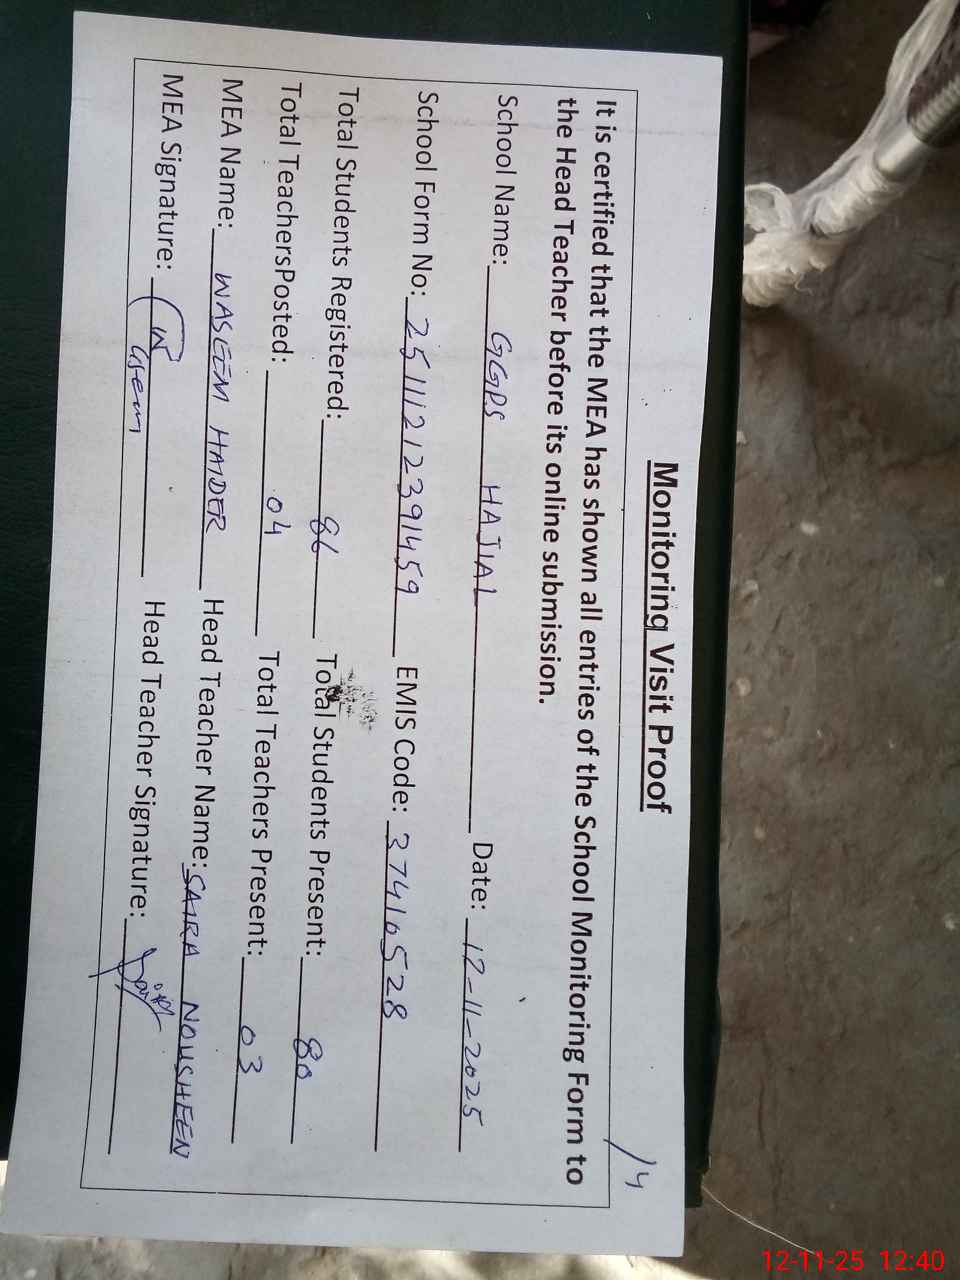 /4
Monitoring Visit Proof
It is certified that the MEA has shown all entries of the School Monitoring Form to
the Head Teacher before its online submission.
School Name: GGPS HAJIAL Date: 12-11-2025
School Form No: 25111212391459 EMIS Code: 37410528
Total Students Registered: 86 Total Students Present: 80
Total TeachersPosted: 04 Total Teachers Present: 03
MEA Name: WASEEM HAIDER Head Teacher Name: SAIRA NOUSHEEN
MEA Signature: Waseem Head Teacher Signature:
12-11-25 12:40